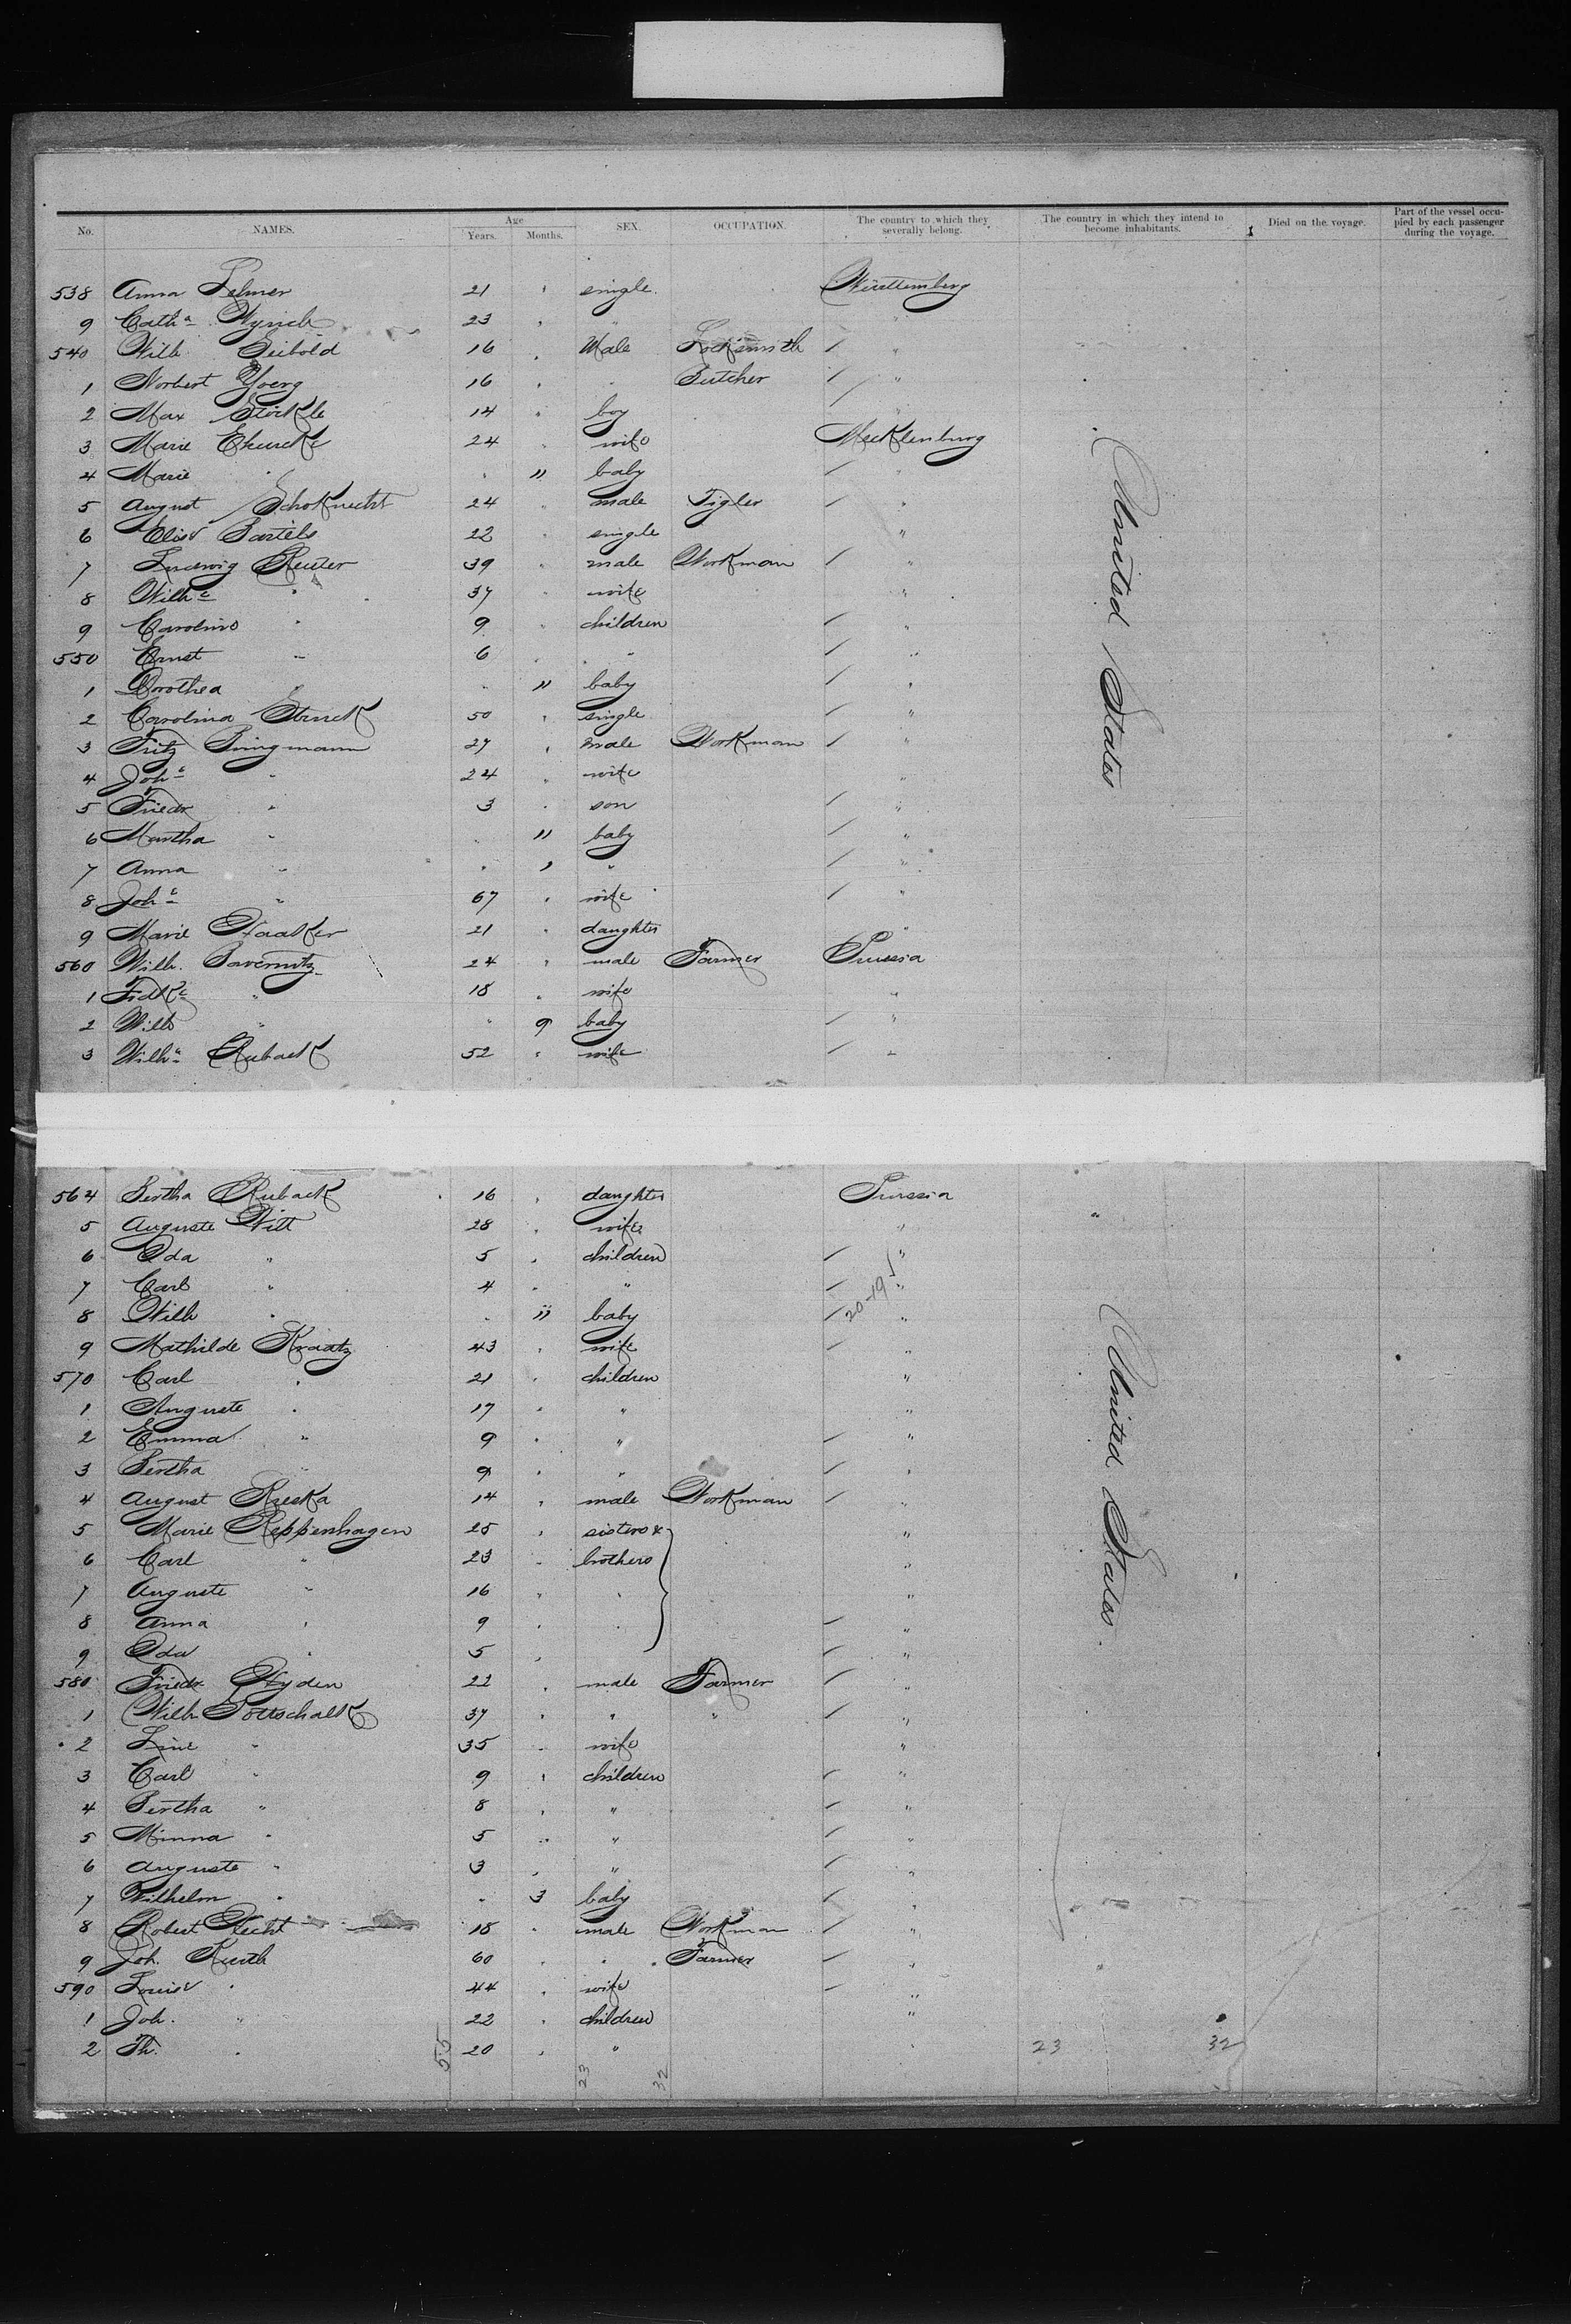 No. NAMES. Age Years. Months. SEX. OCCUPATION. The country to which they severally belong. The country in which they intend to become inhabitants. Died on the voyage. Part of the vessel occupied by each passenger during the voyage.
538 Anna 21 " single Württemberg
9 Cath.a 23 " "
540 Wilh. Seibold 16 " Male Locksmith / "
1 Norbert Yoerg 16 " " Butcher / "
2 Max Störkle 14 " boy "
3 Marie 24 " wife Mecklenburg
4 Marie " " 11 baby / "
5 August Schoknecht 24 " male Tigler / "
6 Elise Bartels 22 " single "
7 Ludwig Reuter 39 " male Workman / "
8 Wilh.e " 37 " wife "
9 Caroline " 9 " children / "
550 Ernst " 6 " " / "
1 Dorothea " " 11 baby / "
2 Carolina Struck 50 " single / "
3 Fritz Bringmann 27 " male Workman / "
4 Joh.e " 24 " wife "
5 Friedr " 3 " son / "
6 Martha " " 11 baby / "
7 Anna " " " " / "
8 Joh.e " 67 " wife / "
9 Marie Haalker 21 " daughter "
560 Wilh. 24 " male Farmer Prussia
1 Fdke " 18 " wife "
2 Wilh " " 9 baby / "
3 Wilh.e Ruback 52 " wife / "
564 Bertha Ruback 16 " daughter Prussia "
5 Auguste Witt 28 " wife "
6 Ida " 5 " children / "
7 Carl " 4 " " / "
8 Wilh " " 11 baby / 20-19 "
9 Mathilde Kraatz 43 " wife / "
570 Carl " 21 " children "
1 Auguste " 17 " " "
2 Emma " 9 " " / "
3 Bertha " 9 " " / "
4 August Rzeska 14 " male Workman / "
5 Marie Reppenhagen 25 " sisters & "
6 Carl " 23 " brothers "
7 Auguste " 16 " " "
8 Anna " 9 " " / "
9 Ida " 5 " / "
580 Friedr Hyden 22 " male Farmer / "
1 Wilh Pottschalk 37 " " " / "
2 Line " 35 " wife "
3 Carl " 9 " children / "
4 Bertha " 8 " " / "
5 Minna " 5 " " / "
6 Auguste " 3 " " / "
7 Wilhelm " " 3 baby / "
8 Robert Hecht 18 " male Workman / "
9 Joh. Kurth 60 " " Farmer / "
590 Louise " 44 " wife / "
1 Joh. " 22 " children "
2 Th. " 20 " " "
United States
United States
55 23 32 23 32